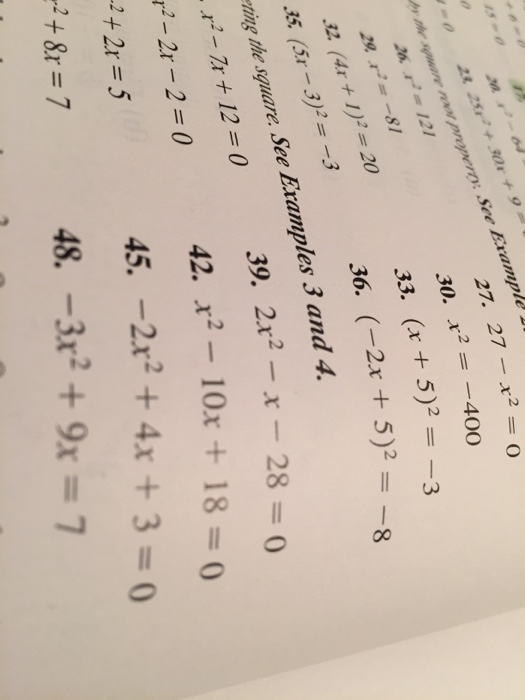 15 = 0 20. x² − 64
= 0 23. 25x² + 30x + 9 =
by the square root property. See Example 2.
26. x² = 121 27. 27 − x² = 0
29. x² = −81 30. x² = −400
32. (4x + 1)² = 20 33. (x + 5)² = −3
35. (5x − 3)² = −3 36. (−2x + 5)² = −8
the square. See Examples 3 and 4.
x² − 7x + 12 = 0 39. 2x² − x − 28 = 0
x² − 2x − 2 = 0 42. x² − 10x + 18 = 0
² + 2x = 5 45. −2x² + 4x + 3 = 0
x² + 8x = 7 48. −3x² + 9x = 7